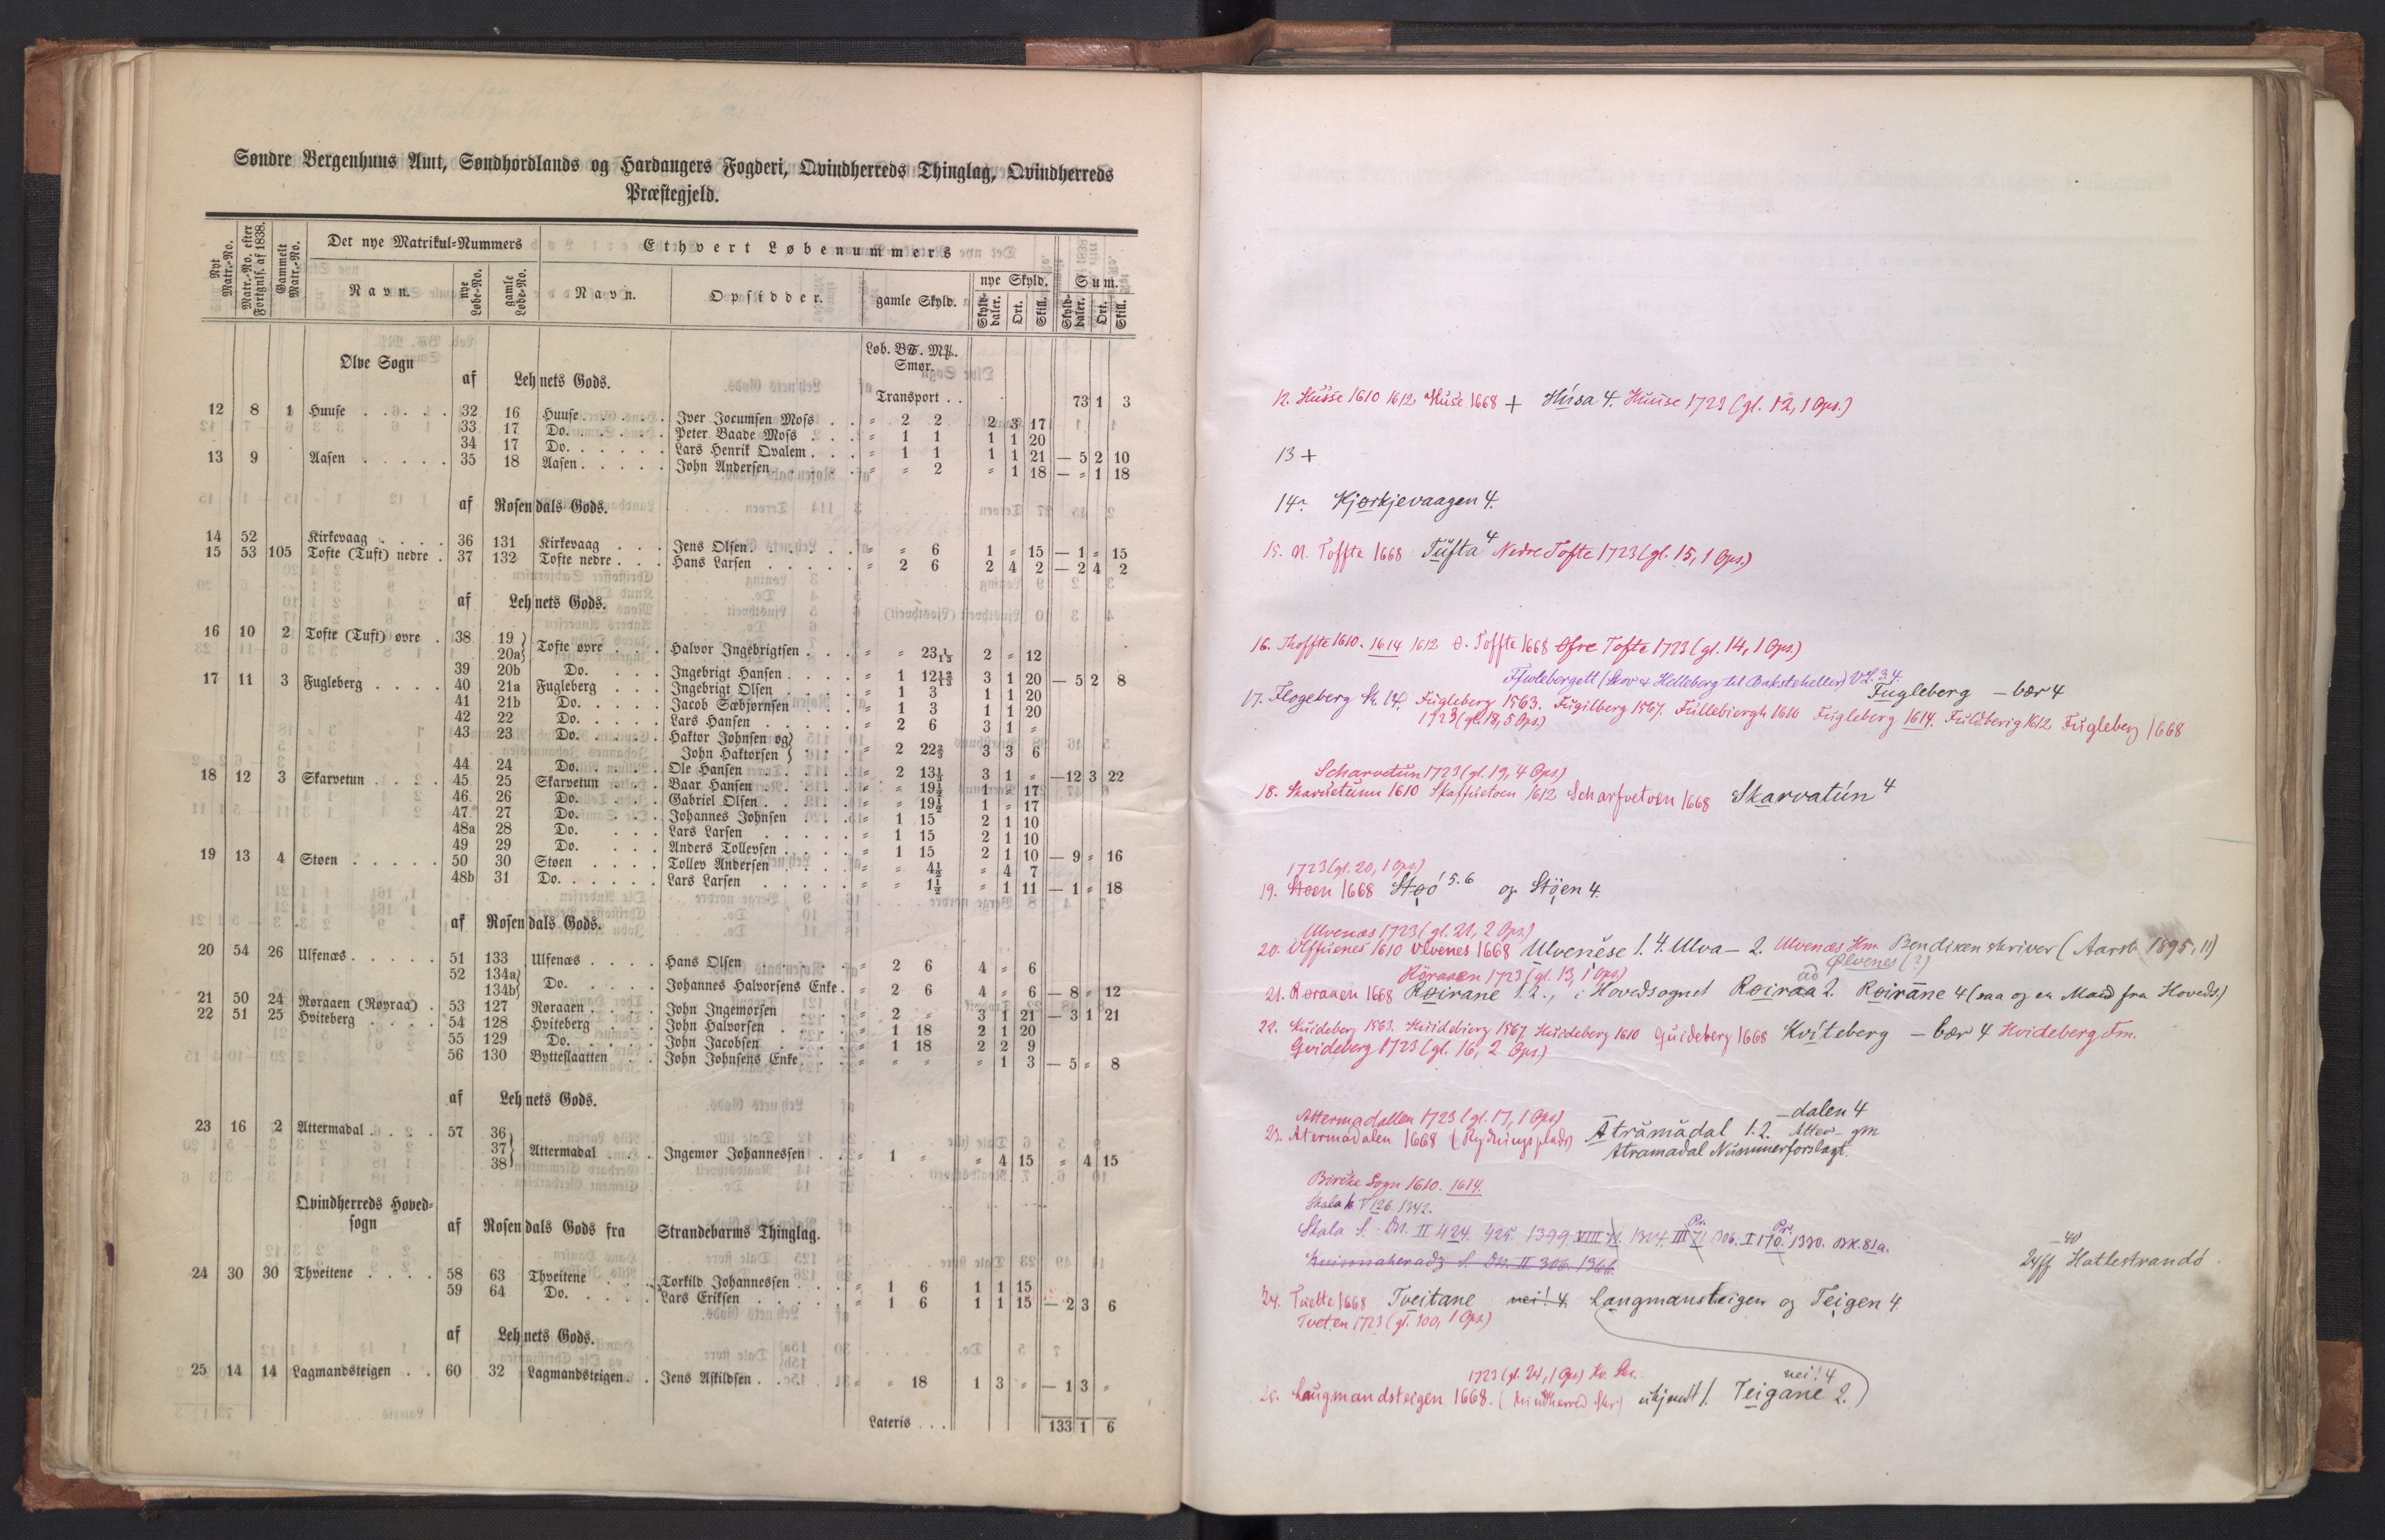 Søndre Bergenhuus Amt, Søndhordlands og Hardangers Fogderi, Qvindherreds Thinglag, Qvindherreds
Præstegjeld.
Nyt Matr.-No.
Matr.-No. efter Fortgnls. af 1838.
Gammelt Matr.-No.
Det nye Matrikul-Nummers
Ethvert Løbenummers
Navn.
nye Løbe-No.
gamle Løbe-No.
Navn.
Opsidder.
gamle Skyld.
nye Skyld.
Skylddaler. Ort. Skill.
Sum.
Skylddaler. Ort. Skill.
Olve Sogn af Lehnets Gods.
Løb. B℔. M℔.
Smør.
Transport . . 73 1 3
12 8 1 Huuse . . . . . 32 16 Huuse. . . . . . Iver Jocumsen Moss . . = 2 2 2 3 17
33 17 Do. . . . . . . Peter Baade Moss . . . = 1 1 1 1 20
34 17 Do. . . . . . . Lars Henrik Qvalem . . . = 1 1 1 1 21 — 5 2 10
13 9 Aasen . . . . . 35 18 Aasen. . . . . . John Andersen. . . . . . = = 2 = 1 18 — = 1 18
af Rosendals Gods.
14 52 Kirkevaag . . . . 36 131 Kirkevaag . . . Jens Olsen. . . . . . . = = 6 1 = 15 — 1 = 15
15 53 105 Tofte (Tuft) nedre . 37 132 Tofte nedre . . . Hans Larsen . . . . . . = 2 6 2 4 2 — 2 4 2
af Lehnets Gods.
16 10 2 Tofte (Tuft) øvre . 38 19 } 20a} Tofte øvre . . . Halvor Ingebrigtsen . . . = = 23 1/3 2 = 12
39 20b Do. . . . Ingebrigt Hansen . . . . = 1 12 2/3 3 1 20 — 5 2 8
17 11 3 Fugleberg . . . . 40 21a Fugleberg . . . Ingebrigt Olsen . . . . = 1 3 1 1 20
41 21b Do. . . . . Jacob Sæbjørnsen . . . = 1 3 1 1 20
42 22 Do. . . . . Lars Hansen . . . . . = 2 6 3 1 =
43 23 Do. . . . . Haktor Johnsen og}
John Haktorsen } . . . = 2 22 2/3 3 3 6
44 24 Do. . . . . Ole Hansen . . . . . = 2 13 1/3 3 1 = — 12 3 22
18 12 3 Skarvetun . . . . 45 25 Skarvetun . . . Baar Hansen . . . . . = = 19 1/2 1 = 17
46 26 Do. . . . Gabriel Olsen . . . . . = = 19 1/2 1 = 17
47 27 Do. . . . Johannes Johnsen . . . = 1 15 2 1 10
48a 28 Do. . . . Lars Larsen . . . . . = 1 15 2 1 10
49 29 Do. . . . Anders Tollevsen . . . . = 1 15 2 1 10 — 9 = 16
19 13 4 Støen . . . . . 50 30 Støen . . . . Tollev Andersen . . . . = = 4 1/2 = 4 7
48b 31 Do. . . . . . Lars Larsen . . . . . = = 1 1/2 = 1 11 — 1 = 18
af Rosendals Gods.
20 54 26 Ulfenæs. . . . . 51 133 Ulfenæs . . . . Hans Olsen . . . . . . = 2 6 4 = 6
52 134a} 134b} Do. . . . . Johannes Halvorsens Enke . = 2 6 4 = 6 — 8 = 12
21 50 24 Røraaen (Røyraa) . 53 127 Røraaen . . . . John Ingemorsen . . . . = 2 = 3 1 21 — 3 1 21
22 51 25 Hviteberg . . . . 54 128 Hviteberg . . . John Halvorsen . . . . = 1 18 2 1 20
55 129 Do. . . . . John Jacobsen . . . . = 1 18 2 2 9
56 130 Bytteslaatten . . John Johnsens Enke. . . = = = = 1 3 — 5 = 8
af Lehnets Gods.
23 16 2 Attermadal . . . . 57 36} 37} 38} Attermadal . . . Ingemor Johannessen . . = 1 = = 4 15 = 4 15
Qvindherreds Hovedsogn af Rosendals Gods fra Strandebarms Thinglag.
24 30 30 Thveitene . . . . 58 63 Thveitene . . . Torkild Johannessen . . . = 1 6 1 1 15
59 64 Do. . . . . Lars Eriksen . . . . . = 1 6 1 1 15 — 2 3 6
af Lehnets Gods.
25 14 14 Lagmandsteigen . . 60 32 Lagmandsteigen . . Jens Askildsen . . . . . = = 18 1 3 = — 1 3 =
Lateris . . . 133 1 6
12. Hússe 1610 1612 Huse 1668 + Húsa 4. Huuse 1723 (gl. 12, 1 Ops.)
13 +
14. Kjørkjevaagen 4.
15. N. Toffte 1668 Tufta 4 Nedre Tofte 1723 (gl. 15, 1 Ops.)
16. Thoffte 1610. 1614 1612 O. Toffte 1668 Øfre Tofte 1723 (gl. 14, 1 Ops.)
Fuglebergett (Skov & Helleberg til Baksteheller) VL. 34.
Fugleberg — bær 4
17. Flogeberg St. 14. Fugleberg 1563. Fugilberg 1567. Fullebiergh 1610 Fugleberg 1614. Fuldberig 1612 Fugleberg 1668
1723 (gl. 18, 5 Ops.)
Scharvetun 1723 (gl. 19, 4 Ops.)
18. Skaruetunn 1610 Skaffuetoen 1612 Scharfvetoen 1668 Skarvatún 4
1723 (gl. 20, 1 Ops.)
19. Støen 1668 Støó 5.6 og Støien 4.
Ulvenæs 1723 (gl. 21, 2 Ops.)
20. Ulffuenes 1610 Ulvenes 1668 Ulvenese 1. 4. Ulva— 2. Ulvenæs Hm. Bendixen skriver (Aarsb 1895, 11)
Ølvenes (?)
Röraaen 1723 (gl. 13, 1 Ops.)
21. Røraaen 1668 Røirane 1. 2., i Hovedsognet Røiraa 2. Røiråne 4 (saa og en Mand fra Hoveds.)
22. Huideberg 1563. Huidebierg 1567, Huideberg 1610 Quideberg 1668 Kvíteberg — bær 4 Hvideberg Fm.
Qvideberg 1723 (gl. 16, 2 Ops.)
Attermadallen 1723 (gl. 17, 1 Ops)
— dalen 4
23. Atermadalen 1668 (Rydningsplads) Atramadal 1. 2. Atter- gm
Atramadal Nummerforslagt.
Bircke Sogn 1610. 1614.
Skala k V 126. 1342.
Skala S. Dn. II 424. 425. 1399
Kuinnaheradz S. Dn. II 306. 1366.
24ff Hattestrandó
24. Tuette 1668 Tveitane nei! 4 Langmansteigen og Teigen 4.
Tveten 1723 (gl. 100, 1 Ops.)
1723 (gl. 24, 1 Ops) Kv. Skr.
nei! 4
25. Laugmandsteigen 1668. (Kvindherred Skr.) ukjendt 1. Teigane 2.)